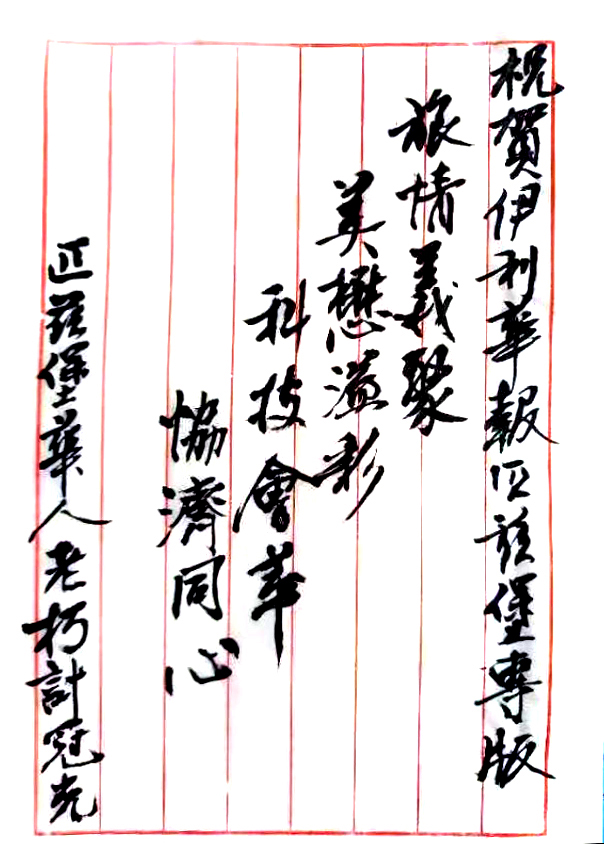 祝賀伊利華報匹兹堡專版
旅情義聚
美懋溢彩
科技會萃
恊濟同心
匹兹堡華人老朽計冠光